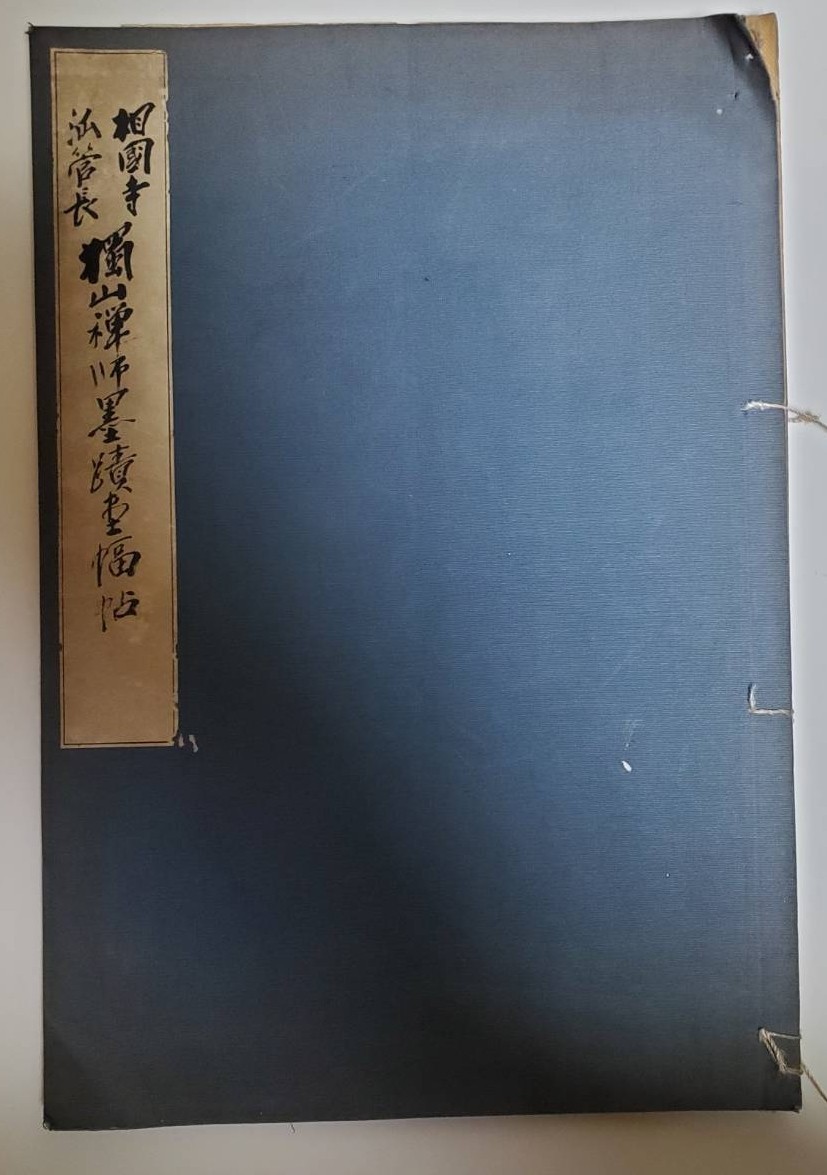 相國寺
派管長
獨山禅師墨蹟畫幅帖